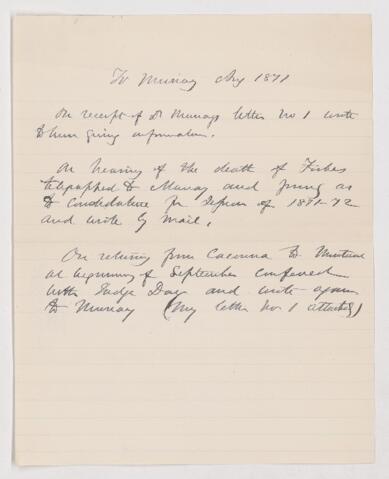 To Murray Aug 1871
On receipt of Dr Murrays letter No 1 wrote
to him giving information.
On hearing of the death of Forbes
telegraphed to Murray and
to candidature for session of 1871-72
and wrote by mail.
On returning from Cacouna to Montreal
at beginning of September conferred
with Judge Day and wrote again
to Murray (My letter No 1 attached)